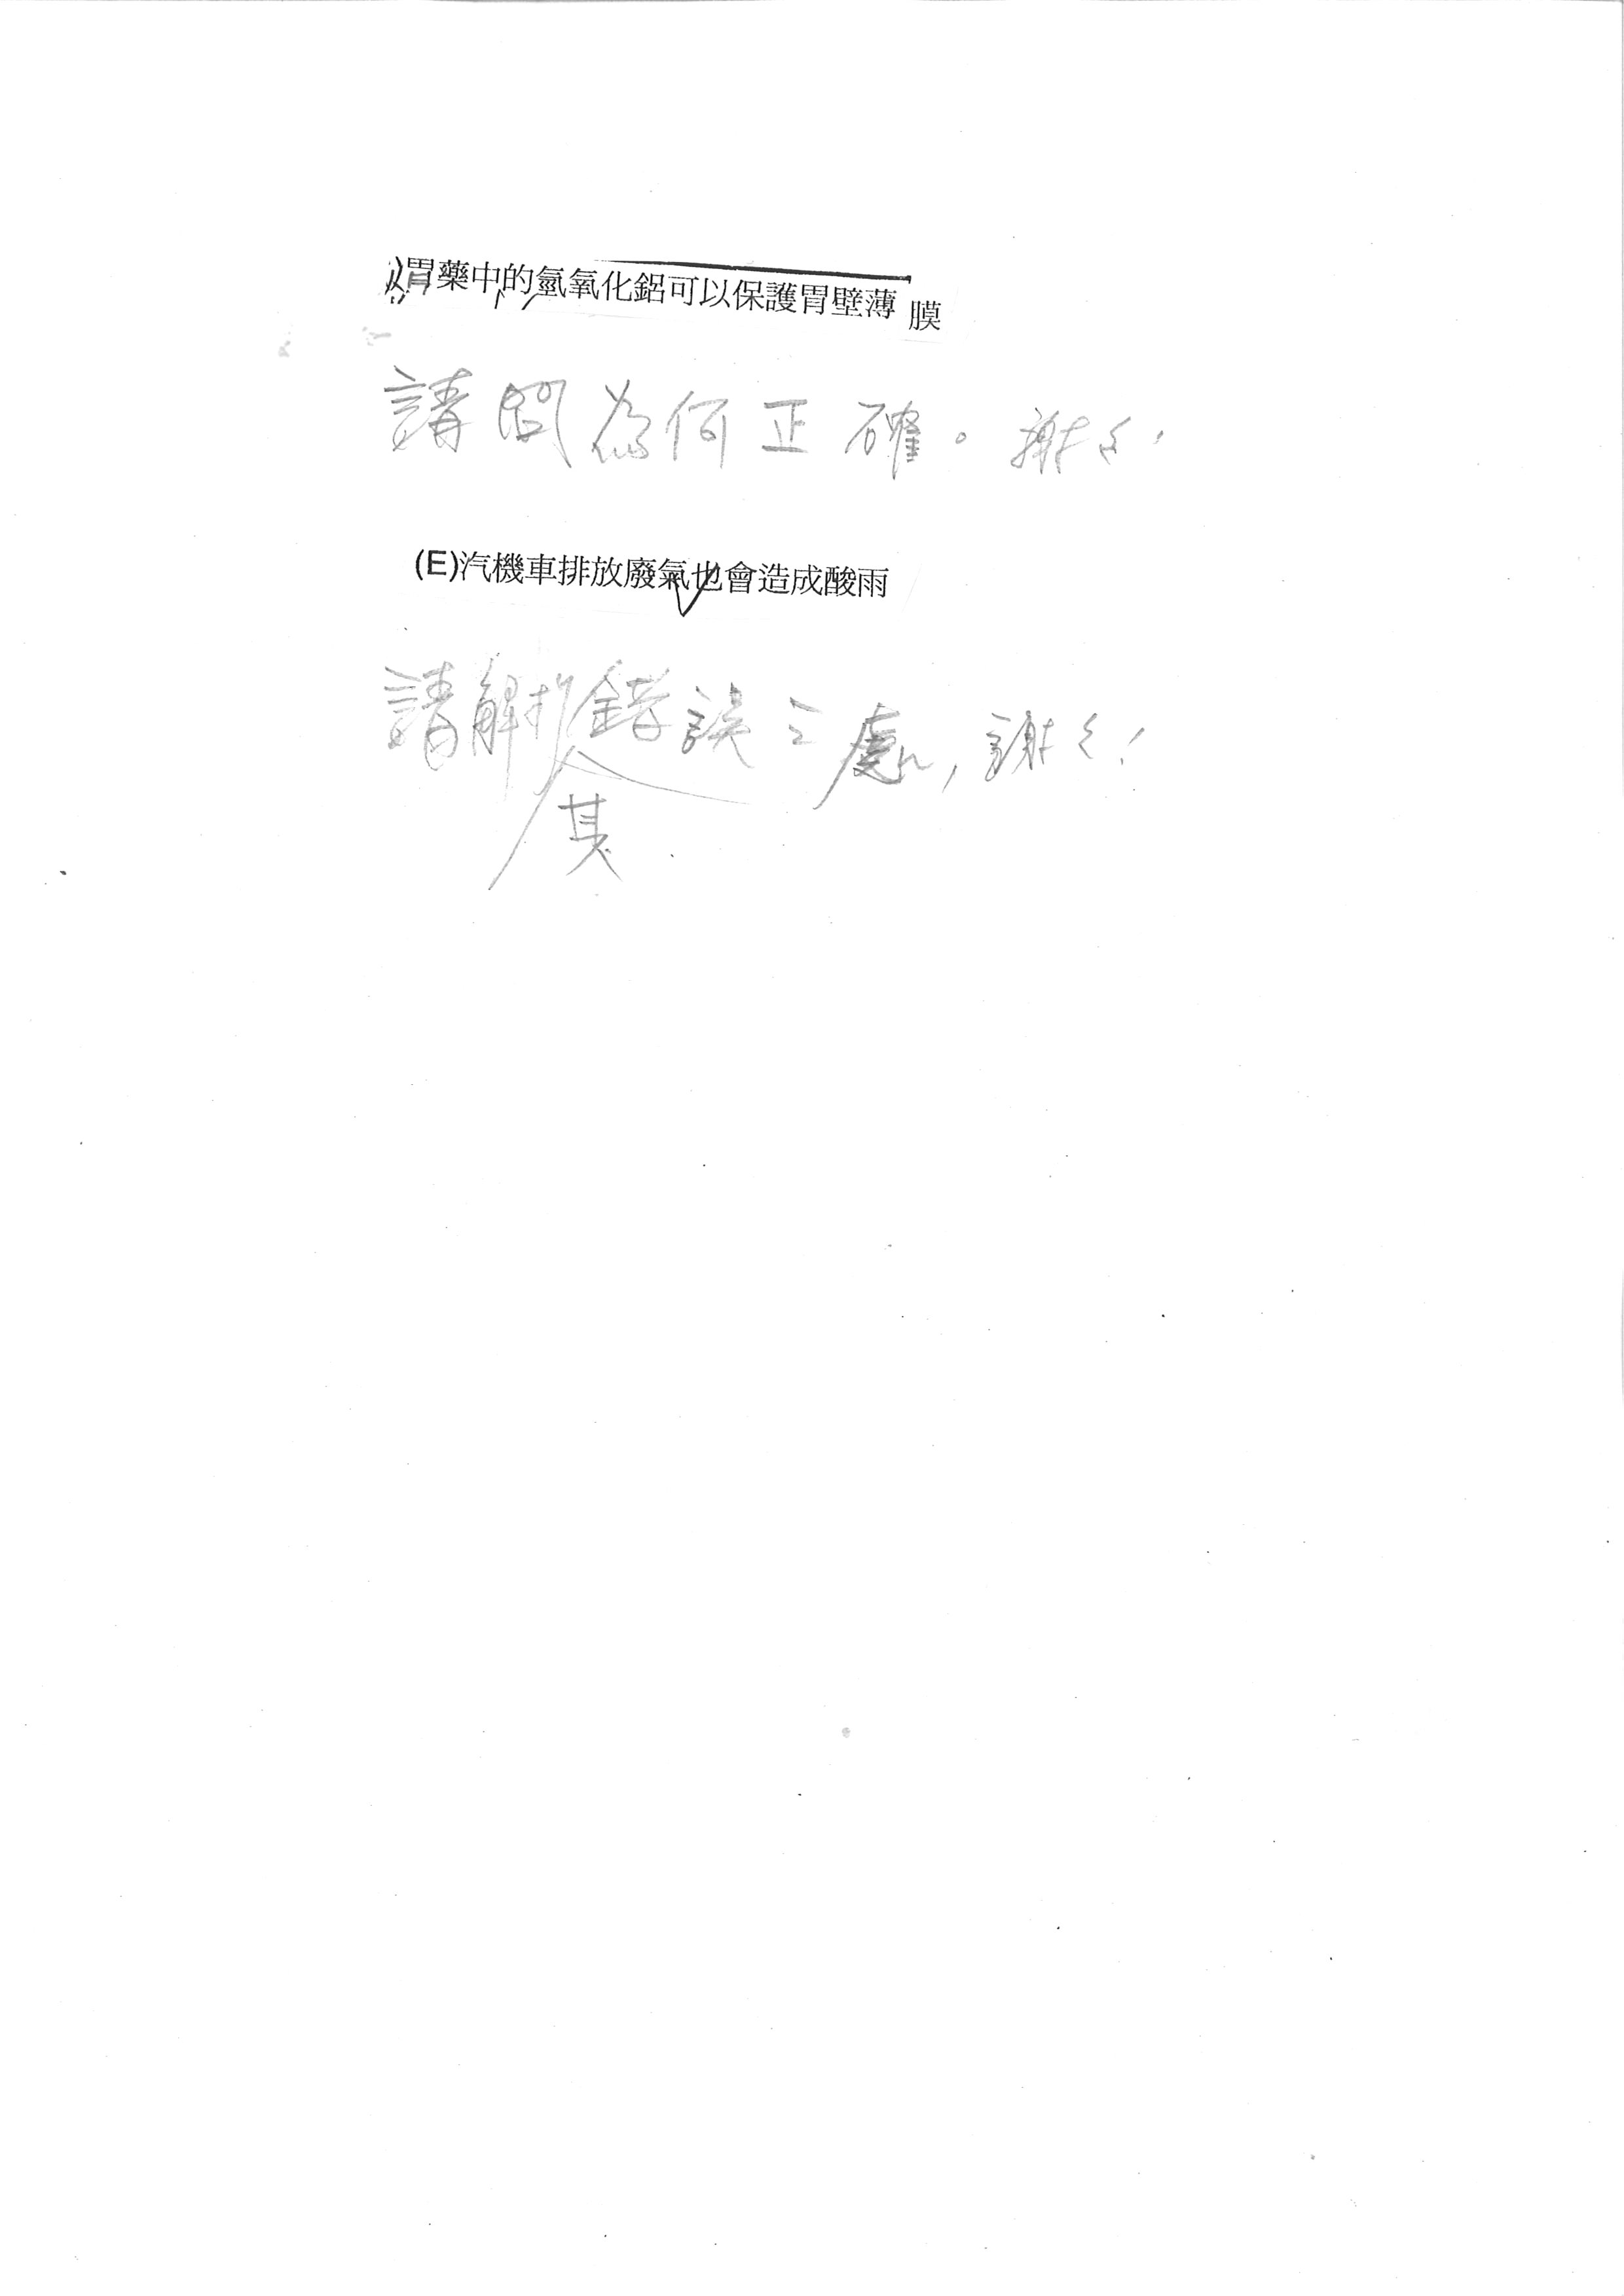 胃藥中的氫氧化鋁可以保護胃壁薄膜
請問為何正確。謝謝!
(E)汽機車排放廢氣也會造成酸雨
請解析其錯誤之處,謝謝!